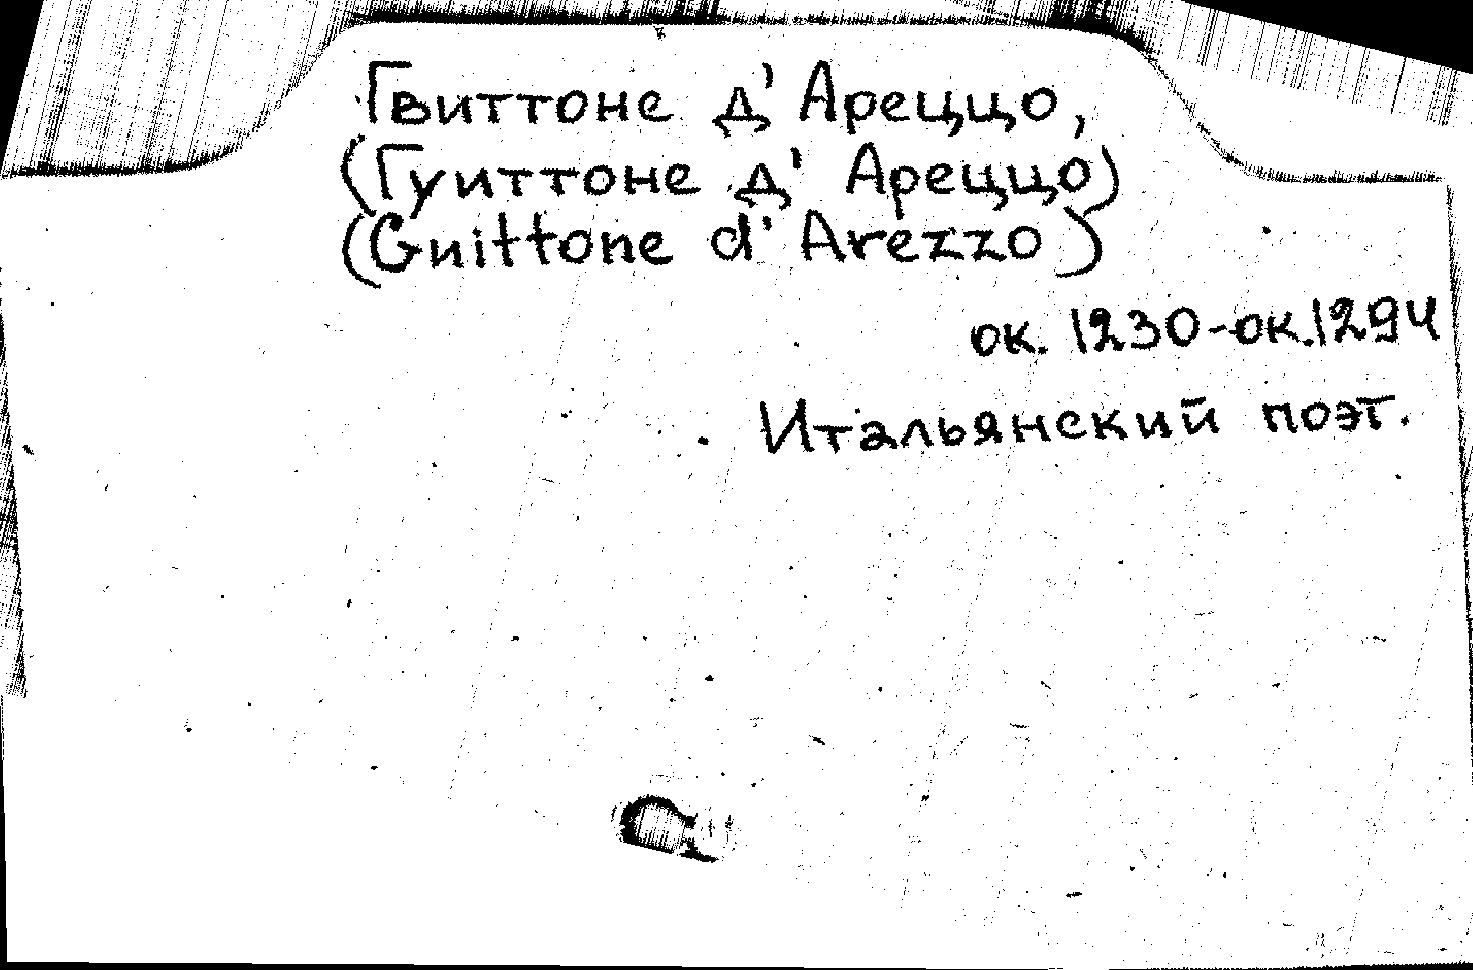 Гвиттоне д'Ареццо,
(Гуиттоне д'Ареццо)
(Guittone d'Arezzo)
ок. 1230-ок. 1294
Итальянский поэт.